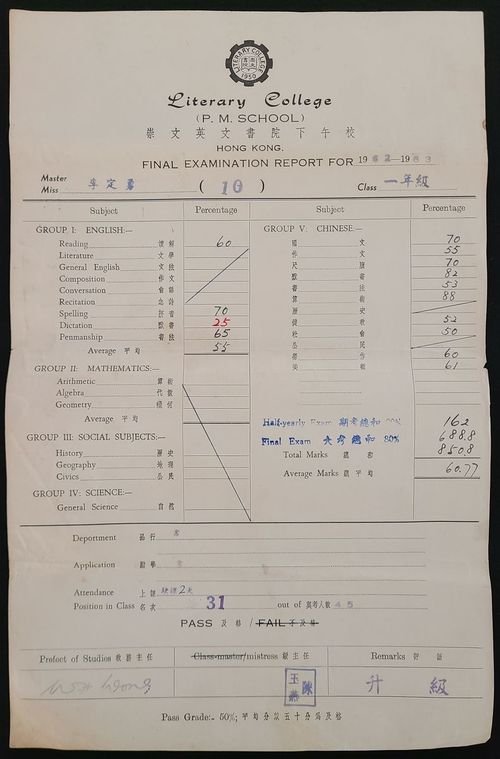 LITERARY COLLEGE
1950
Literary College
(P. M. SCHOOL)
崇文英文書院下午校
HONG KONG.
FINAL EXAMINATION REPORT FOR 1962-1963
Master
Miss 李定勇 (10) Class 一年級
Subject Percentage Subject Percentage
GROUP I: ENGLISH:—
Reading 60
Literature 文學
General English 文法
Composition 作文
Conversation 會話
Recitation 念詩
Spelling 拼音 70
Dictation 默書 25
Penmanship 書法 65
Average 平均 55
GROUP II: MATHEMATICS:—
Arithmetic 算術
Algebra 代數
Geometry 幾何
Average 平均
GROUP III: SOCIAL SUBJECTS:—
History 歷史
Geography 地理
Civics 公民
GROUP IV: SCIENCE:—
General Science 自然
GROUP V: CHINESE:—
國文 70
作文 55
尺牘 70
默書 82
書法 53
算術 88
歷史
健教 52
社會 50
公民
勞作 60
美術 61
Half-yearly Exam 期考總和 162
Final Exam 大考總和 80% 688.8
Total Marks 總和 850.8
Average Marks 總平均 60.77
Department 品行 常
Application 勤學 常
Attendance 上課 缺課2天
Position in Class 名次 31 out of 與考人數 45
PASS 及格 / FAIL 不及格
Prefect of Studies 教務主任 Class-master/mistress 級主任 Remarks 評語
陳玉燕 升級
Pass Grade:- 50%; 平均分數五十分為及格